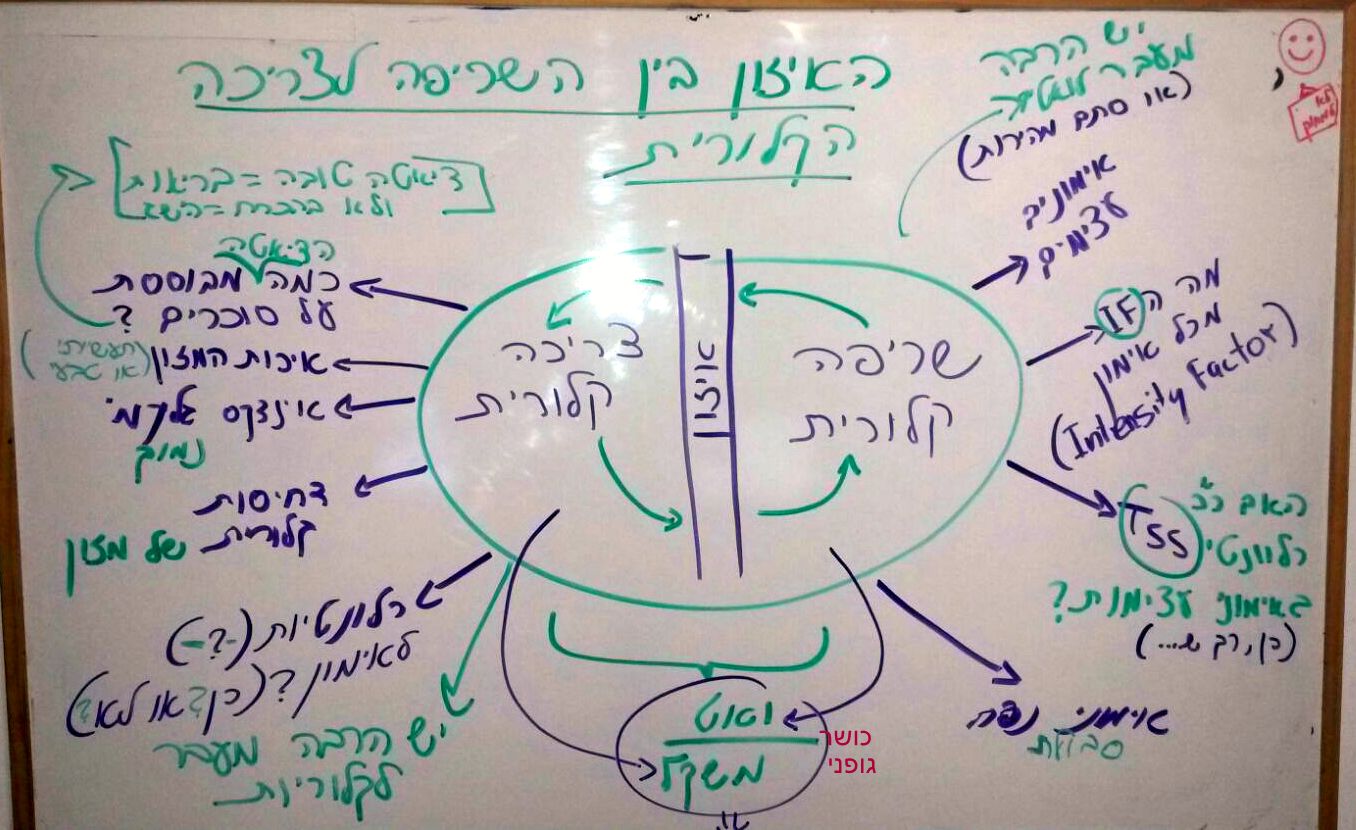 האיזון בין השריפה לצריכה
הקלורית
יש הרבה
מעבר לוואטים
(או סתם מהירות)
לא
למחוק
[דיאטה טובה = בריאות
ולא בהכרח = השג]
הדיאטה
כמה מבוססת
על סוכרים?
איכות המזון (תעשייתי
או טבעי)
אינדקס גלקמי
נמוך
דחיסות
קלורית של מזון
רלוונטיות (-?-)
לאימון? (כן? או לא?)
יש הרבה מעבר
לקלוריות
צריכה
קלורית
איזון
שריפה
קלורית
אימונים
עצימים
מה ה IF
מכל אימון
(Intensity Factor)
האם ככ
TSS רלוונטי
באימוני עצימות?
(כן, רק ש...)
אימוני נפח
סבולת
וואט
משקל
כושר
גופני